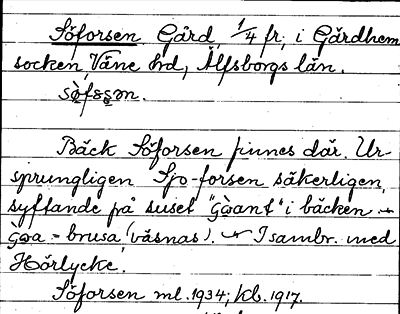 Söforsen Gård, 1/4 fr, i Gärdhem
socken, Väne hd, Älfsborgs län.
Bäck Söforsen finnes där. Ur-
sprungligen Sjo-forsen säkerligen,
syftande på suset "gòant" i bäcken
gòa = brusa (väsnas). I sambr. med
Hörlycke.
Söforsen ml. 1934; kb. 1917.